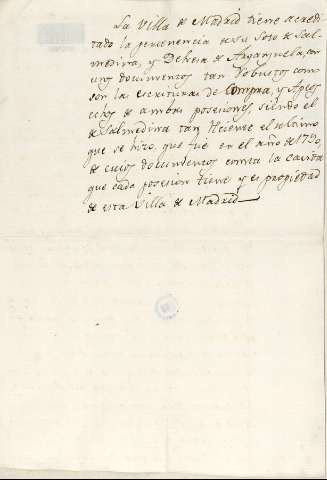 La Villa de Madrid tiene acredi
tado la pertenencia de su Soto de Sal
medina, y Dehesa de Arganzuela, con
unos documentos tan robustos como
son las escrituras de Compra, y Apeo
de ambas posesiones, siendo el
de Salmedina tan reciente el ultimo
que se hizo, que fue en el año de 1790,
de cuios documentos consta la cavida
que cada posesion tiene y es propiedad
de esta Villa de Madrid